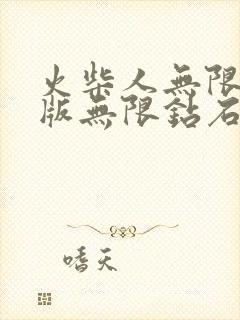 火柴人無限
版無限鉆石
嗜天